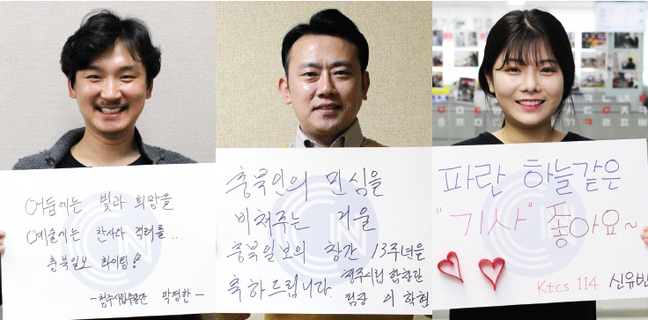 어둠에는 빛과 희망을
예술에는 찬사와 격려를...
충북일보 화이팅!
박정한 -
충북인의 민심을
비춰주는 거울
충북일보의 창간 13주년을
축하드립니다.
청주시립합창단
팀장 이
파란 하늘같은
"기사" 좋아요~
Ktcs 114 신유빈